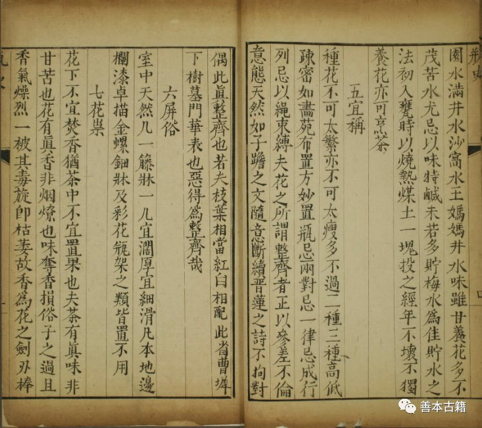 瓶史
園水滿井水沙窩水王媽媽井水味雖甘養花多不
茂苦水尤忌以味特鹹未若多貯梅水為佳貯水之
法初入甕時以燒熱煤土一塊投之經年不壞不獨
養花亦可烹茶
五宜稱
種花不可太繁亦不可太瘦多不過二種三種高低
疎密如畫苑布置方妙置瓶忌兩對忌一律忌成行
列忌以繩束縛夫花之所謂整齊者正以參差不倫
意態天然如子瞻之文隨意斷續青蓮之詩不拘對
偶此真整齊也若夫枝葉相當紅白相配此省曹墀
下樹墓門華表也惡得為整齊哉
六屏俗
室中天然几一籐牀一几宜濶厚宜細滑凡本地邊
欄漆卓描金螺鈿牀及彩花瓶架之類皆置不用
七花祟
花下不宜焚香猶茶中不宜置果也夫茶有真味非
甘苦也花有真香非烟燎也味奪香損俗子之過且
香氣燥烈一被其毒旋即枯萎故香為花之劍刃棒
善本古籍